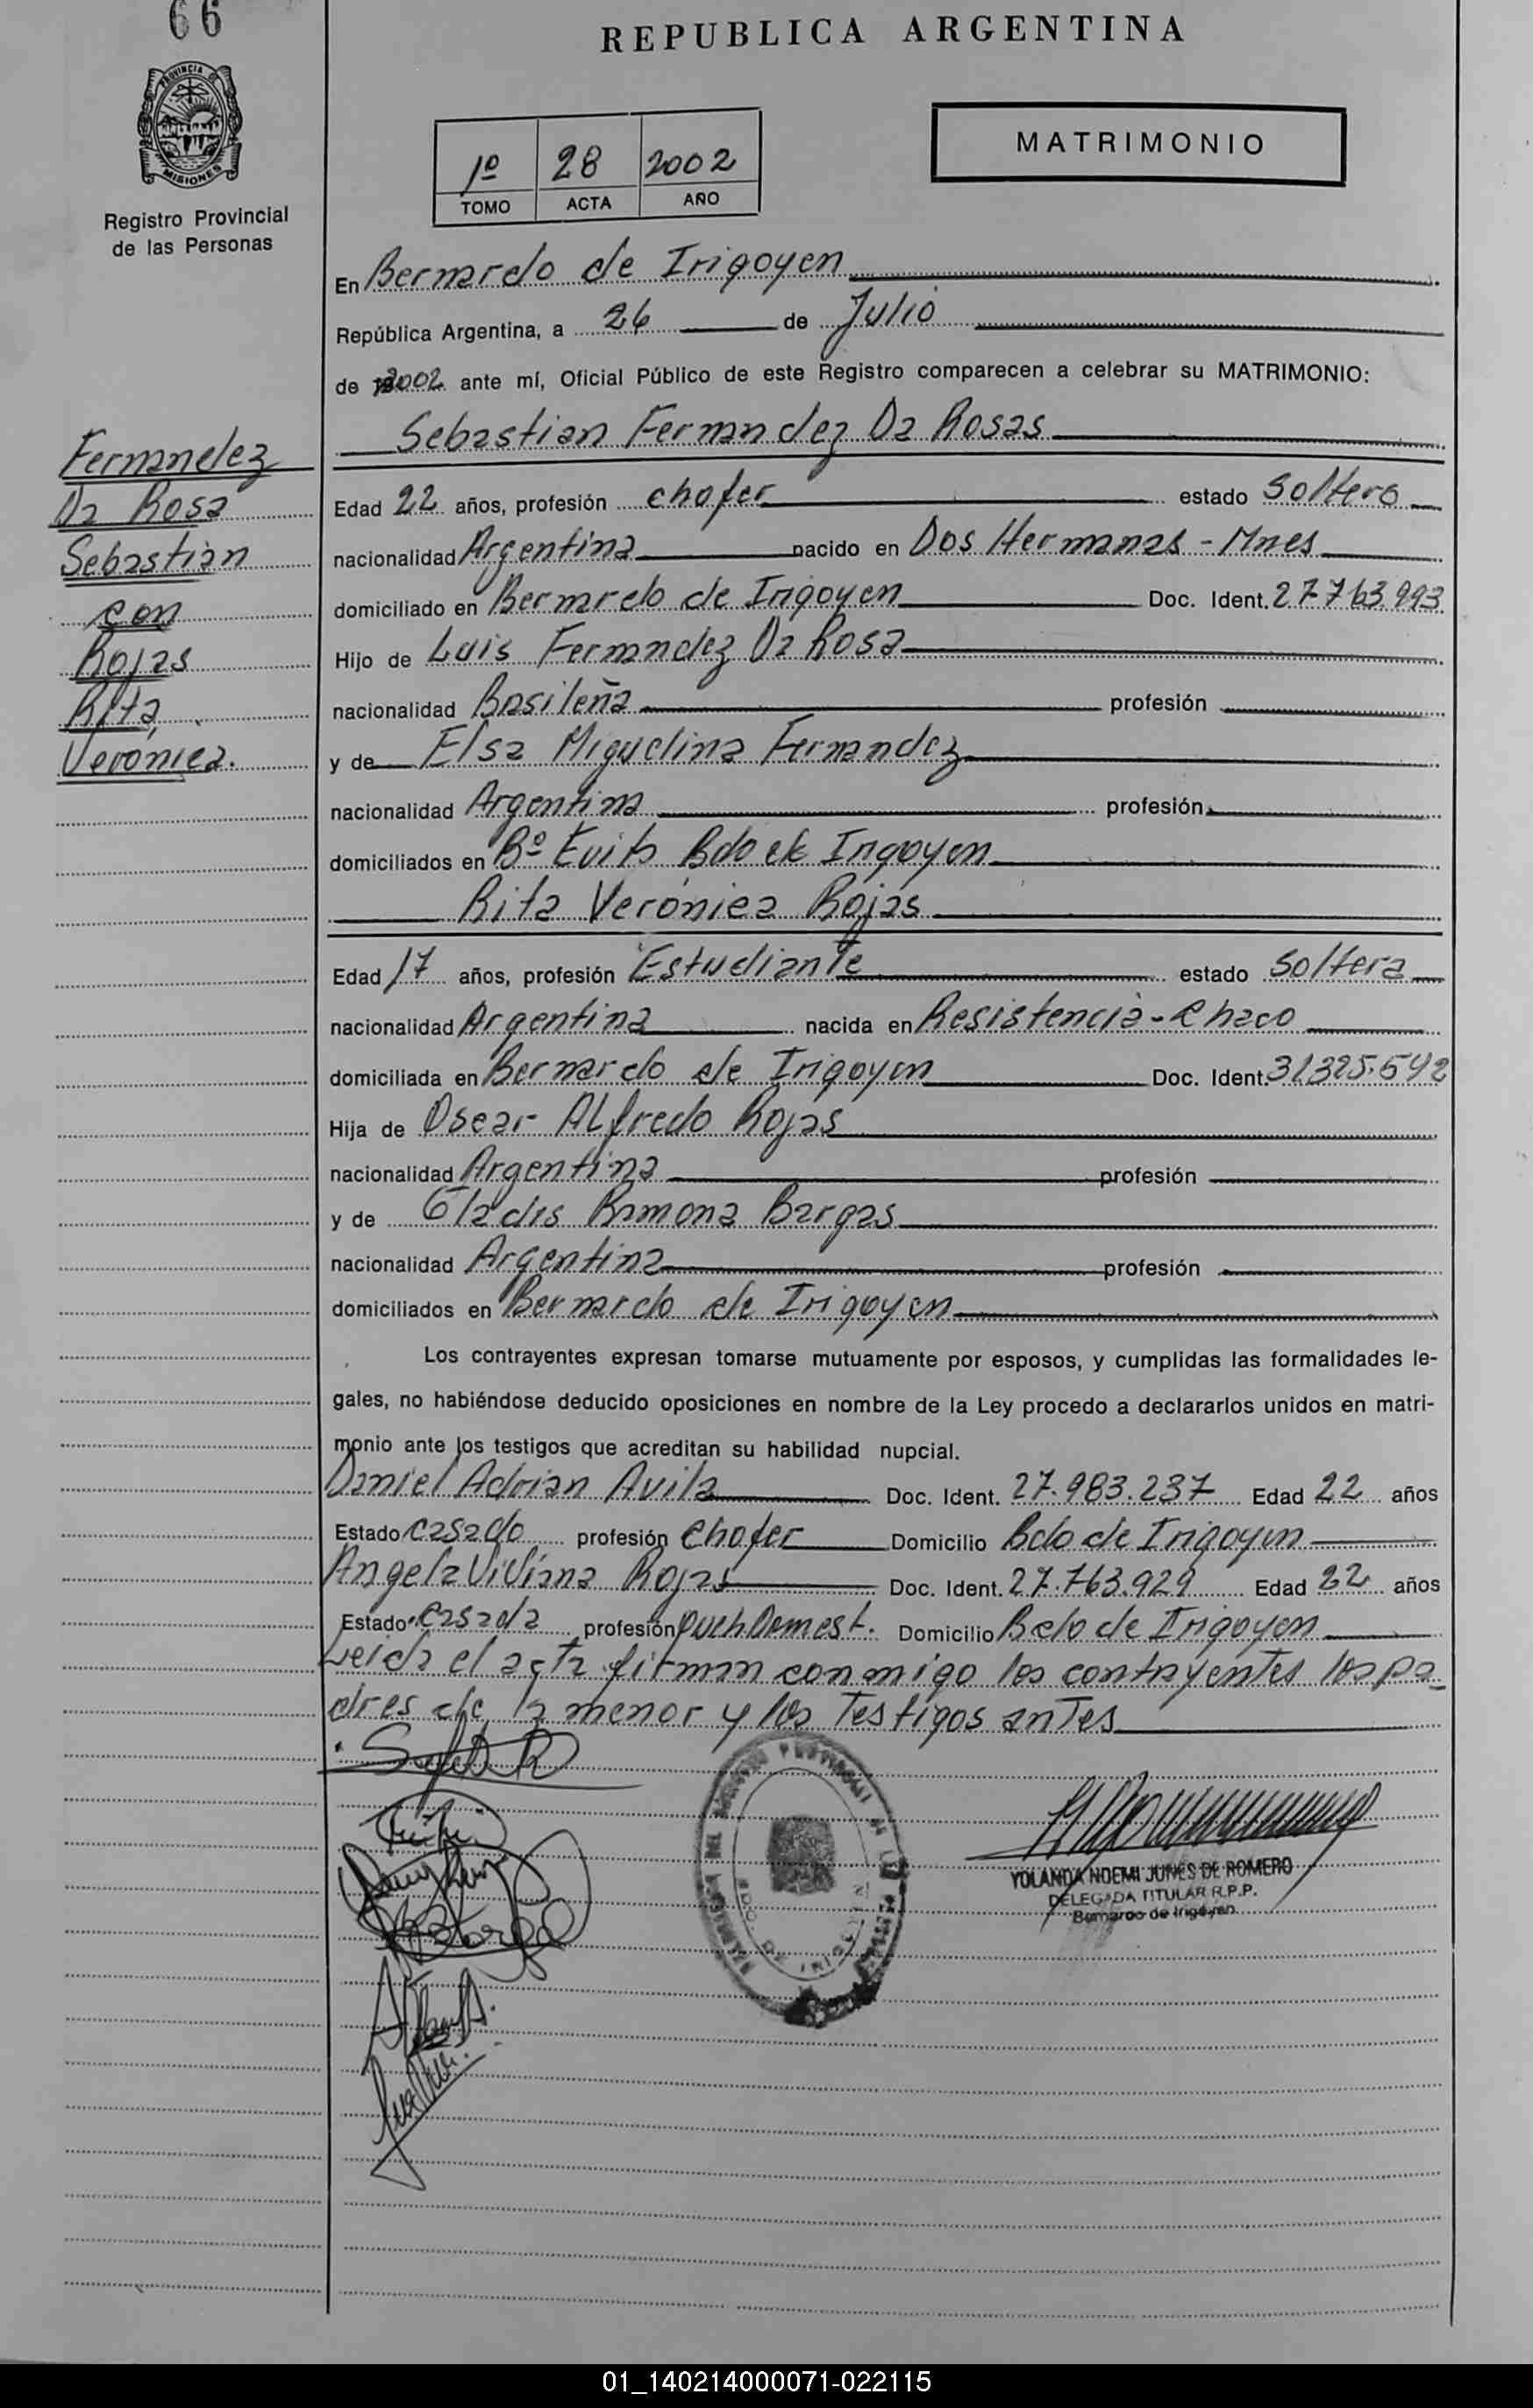 66
REPUBLICA ARGENTINA
PROVINCIA DE
MISIONES
Registro Provincial
de las Personas
1º 28 2002
TOMO ACTA AÑO
MATRIMONIO
En Bernardo de Irigoyen
República Argentina, a 26 de Julio
de 2002 ante mí, Oficial Público de este Registro comparecen a celebrar su MATRIMONIO:
Sebastian Fernandez Da Rosas
Fernandez
Da Rosa
Sebastian
con
Rojas
Rita
Verónica.
Edad 22 años, profesión chofer estado Soltero
nacionalidad Argentina nacido en Dos Hermanas - Mnes
domiciliado en Bernardo de Irigoyen Doc. Ident. 27.763.993
Hijo de Luis Fernandez Da Rosa
nacionalidad Brasileña profesión
y de Elsa Miguelina Fernandez
nacionalidad Argentina profesión
domiciliados en Bº Evita Bdo de Irigoyen
Rita Verónica Rojas
Edad 17 años, profesión Estudiante estado Soltera
nacionalidad Argentina nacida en Resistencia - Chaco
domiciliada en Bernardo de Irigoyen Doc. Ident. 31.325.542
Hija de Oscar Alfredo Rojas
nacionalidad Argentina profesión
y de Gladis Ramona Bargas
nacionalidad Argentina profesión
domiciliados en Bernardo de Irigoyen
Los contrayentes expresan tomarse mutuamente por esposos, y cumplidas las formalidades le-
gales, no habiéndose deducido oposiciones en nombre de la Ley procedo a declararlos unidos en matri-
monio ante los testigos que acreditan su habilidad nupcial.
Daniel Adrian Avila Doc. Ident. 27.983.237 Edad 22 años
Estado casado profesión Chofer Domicilio Bdo de Irigoyen
Angela Viviana Rojas Doc. Ident. 27.763.929 Edad 22 años
Estado casada profesión Queh Domest. Domicilio Bdo de Irigoyen
Leida el acta firman conmigo los contrayentes los pa-
dres de la menor y los Testigos antes
YOLANDA NOEMI JUNES DE ROMERO
DELEGADA TITULAR R.P.P.
Bernardo de Irigoyen
01_140214000071-022115